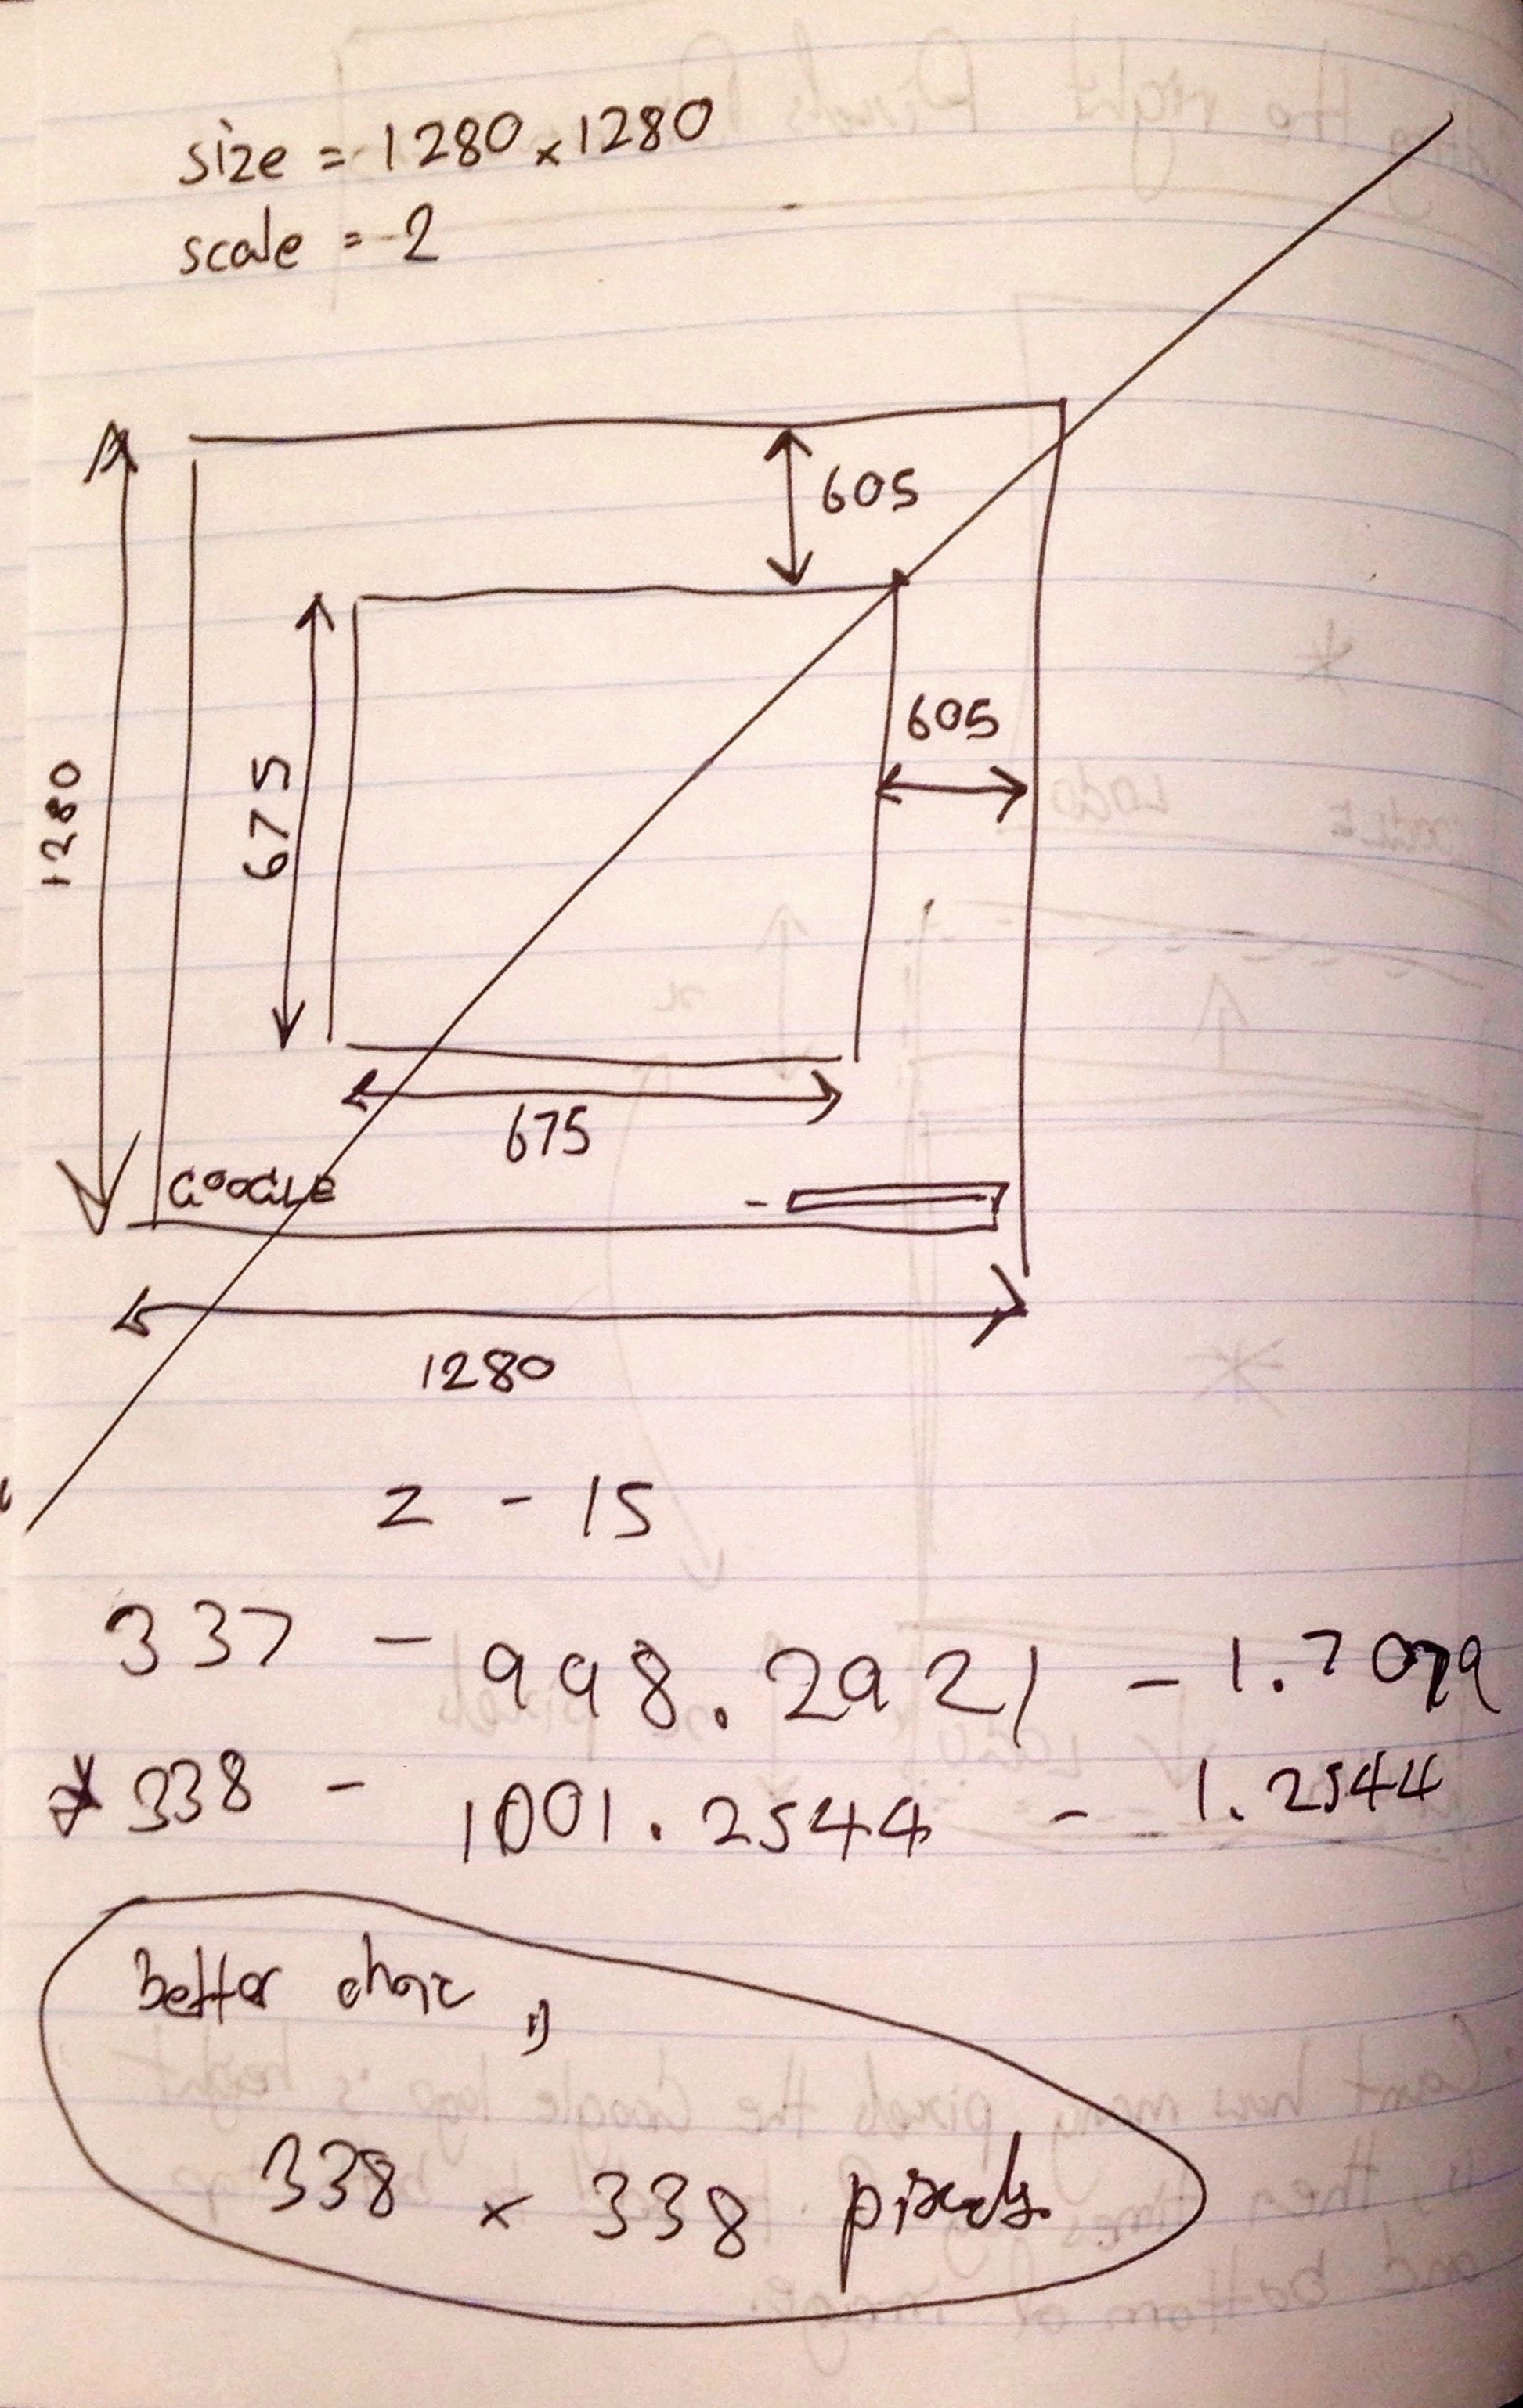 size = 1280 x 1280
scale = 2
605
605
1280
675
675
GOOGLE
1280
z - 15
337 - 998.2921 - 1.7079
* 338 - 1001.2544 - 1.2544
better
338 x 338 pixels